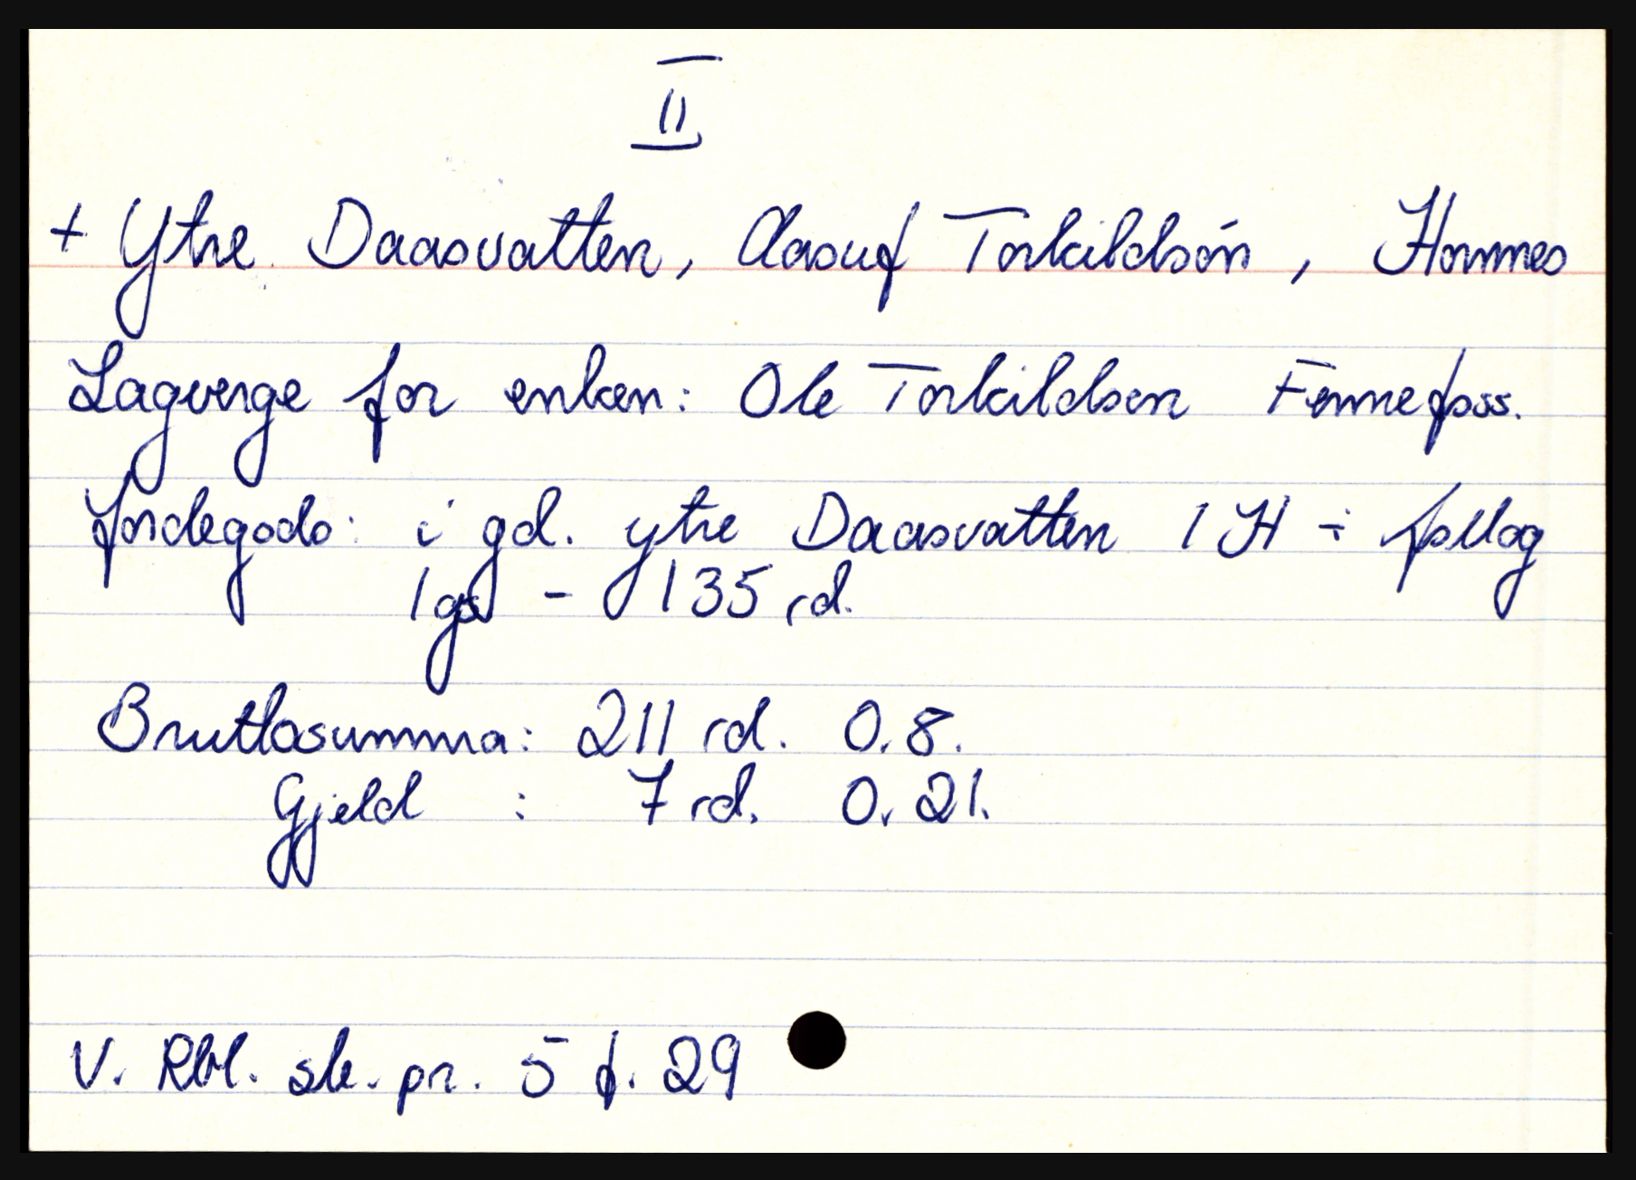 II
+ Ytre Daasvatten, Aasuf Torkildsøn, Hornnes
Lagverge for enken: Ole Torkildsen Fennefoss.
Jordegods: i gd. ytre Daasvatten 1 H ÷
1 gs - 135 rd.
Bruttosumma: 211 rd. 0.8.
Gjeld : 7 rd. 0.21.
V. Rbl. sk. pr. 5 f. 29